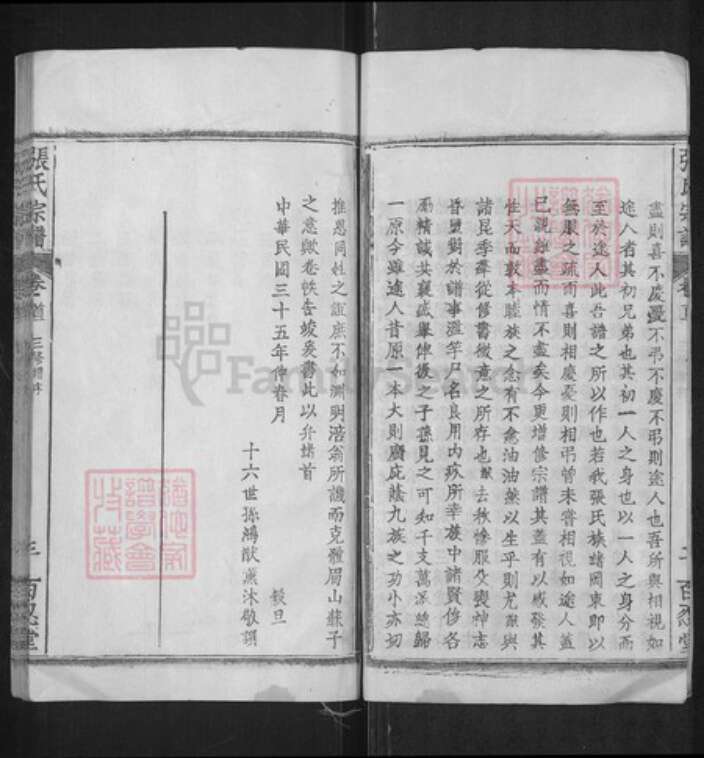 張氏宗譜
盡則喜不慶憂不弔不慶不弔則途人也吾所與相視如
途人者其初兄弟也其初一人之身也以一人之身分而
至於途人此吾譜之所以作也若我張氏族諸同東即以
無服之疏而喜則相慶憂則相弔曾未嘗相視如途人蓋
已親雖盡而情不盡矣今更增修宗譜其蓋有以感發其
性天而敦本睦族之念有不禽油油然以生乎則尤猷與
諸昆季羣從修書微意之所存也猷去秋慘服父喪神志
昏瞶對於譜事濫竽尸名良用內疚所幸族中諸賢俢各
屬精誠共襄盛舉俾後之子孫見之可知千支萬派總歸
一原今雖途人昔原一本大則廣庇蔭九族之功小亦切
百忍堂
推恩同姓之誼庶不如淵明涪翁所譏而克體眉山蘇子
之意歟卷帙告竣爰書此以弁諸首
中華民國三十五年仲春月
穀旦
十六世孫鴻猷薰沐敬譔
張氏宗譜
卷首
三修譜序
百忍堂
FamilySearch
譜學會
藏